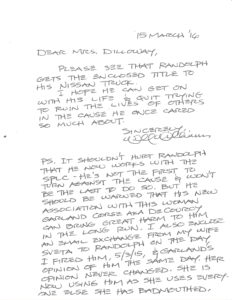 15 MARCH '16
DEAR MRS. DILLOWAY,
PLEASE SEE THAT RANDOLPH
GETS THE ENCLOSED TITLE TO
HIS NISSAN TRUCK.
I HOPE HE CAN GET ON
WITH HIS LIFE & QUIT TRYING
TO RUIN THE LIVES OF OTHERS
IN THE CAUSE HE ONCE CARED
SO MUCH ABOUT.
SINCERELY,
PS. IT SHOULDN'T HURT RANDOLPH
THAT HE NOW WORKS WITH THE
SPLC - HE'S NOT THE FIRST TO
TURN AGAINST THE CAUSE & WON'T
BE THE LAST TO DO SO. BUT HE
SHOULD BE WARNED THAT HIS NEW
ASSOCIATION WITH THIS WOMAN
GARLAND CORSE AKA DECOURCY
CAN BRING GREAT HARM TO HIM
IN THE LONG RUN. I ALSO ENCLOSE
AN EMAIL EXCHANGE FROM MY WIFE
SVETA TO RANDOLPH ON THE DAY
I FIRED HIM, 5/3/15, & GARLAND'S
OPINION OF HIM THE SAME DAY. HER
OPINION NEVER CHANGED. SHE IS
NOW USING HIM AS SHE USES EVERY-
ONE ELSE SHE HAS BADMOUTHED.